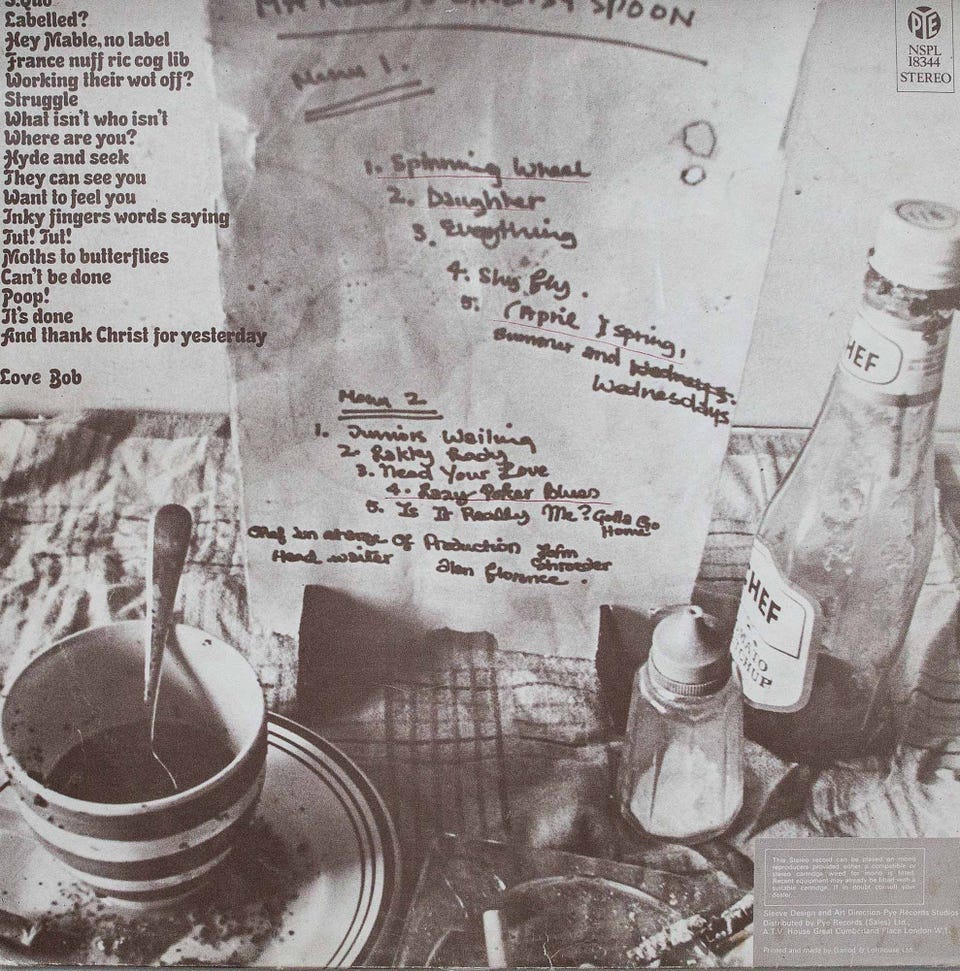 S.Quo
Labelled?
Hey Mable, no label
France nuff ric cog lib
Working their wot off?
Struggle
What isn't who isn't
Where are you?
Hyde and seek
They can see you
Want to feel you
Inky fingers words saying
Tut! Tut!
Moths to butterflies
Can't be done
Poop!
It's done
And thank Christ for yesterday
Love Bob
MA KELLY'S GREASY SPOON
Menu 1.
1. Spinning Wheel
2. Daughter
3. Everything
4. Shy fly.
5. (April) Spring,
Summer and Wednesdays.
Wednesdays
Menu 2
1. Juniors Wailing
2. Lakky Lady
3. Need Your Love
4. Lazy Poker Blues
5. Is It Really Me? Gotta Go
Home
Chef in charge of Production John
Schroeder
Head waiter Alan Florence.
PYE
NSPL
18344
STEREO
CHEF
CHEF
TOMATO
KETCHUP
This Stereo record can be played on mono
reproducers provided either a compatible or
stereo cartridge wired for mono is fitted.
Recent equipment may already be fitted with a
suitable cartridge. If in doubt consult your
dealer.
Sleeve Design and Art Direction Pye Records Studios
Distributed by Pye Records (Sales) Ltd.,
A.T.V. House Great Cumberland Place London W.1.
Printed and made by Garrod & Lofthouse Ltd.